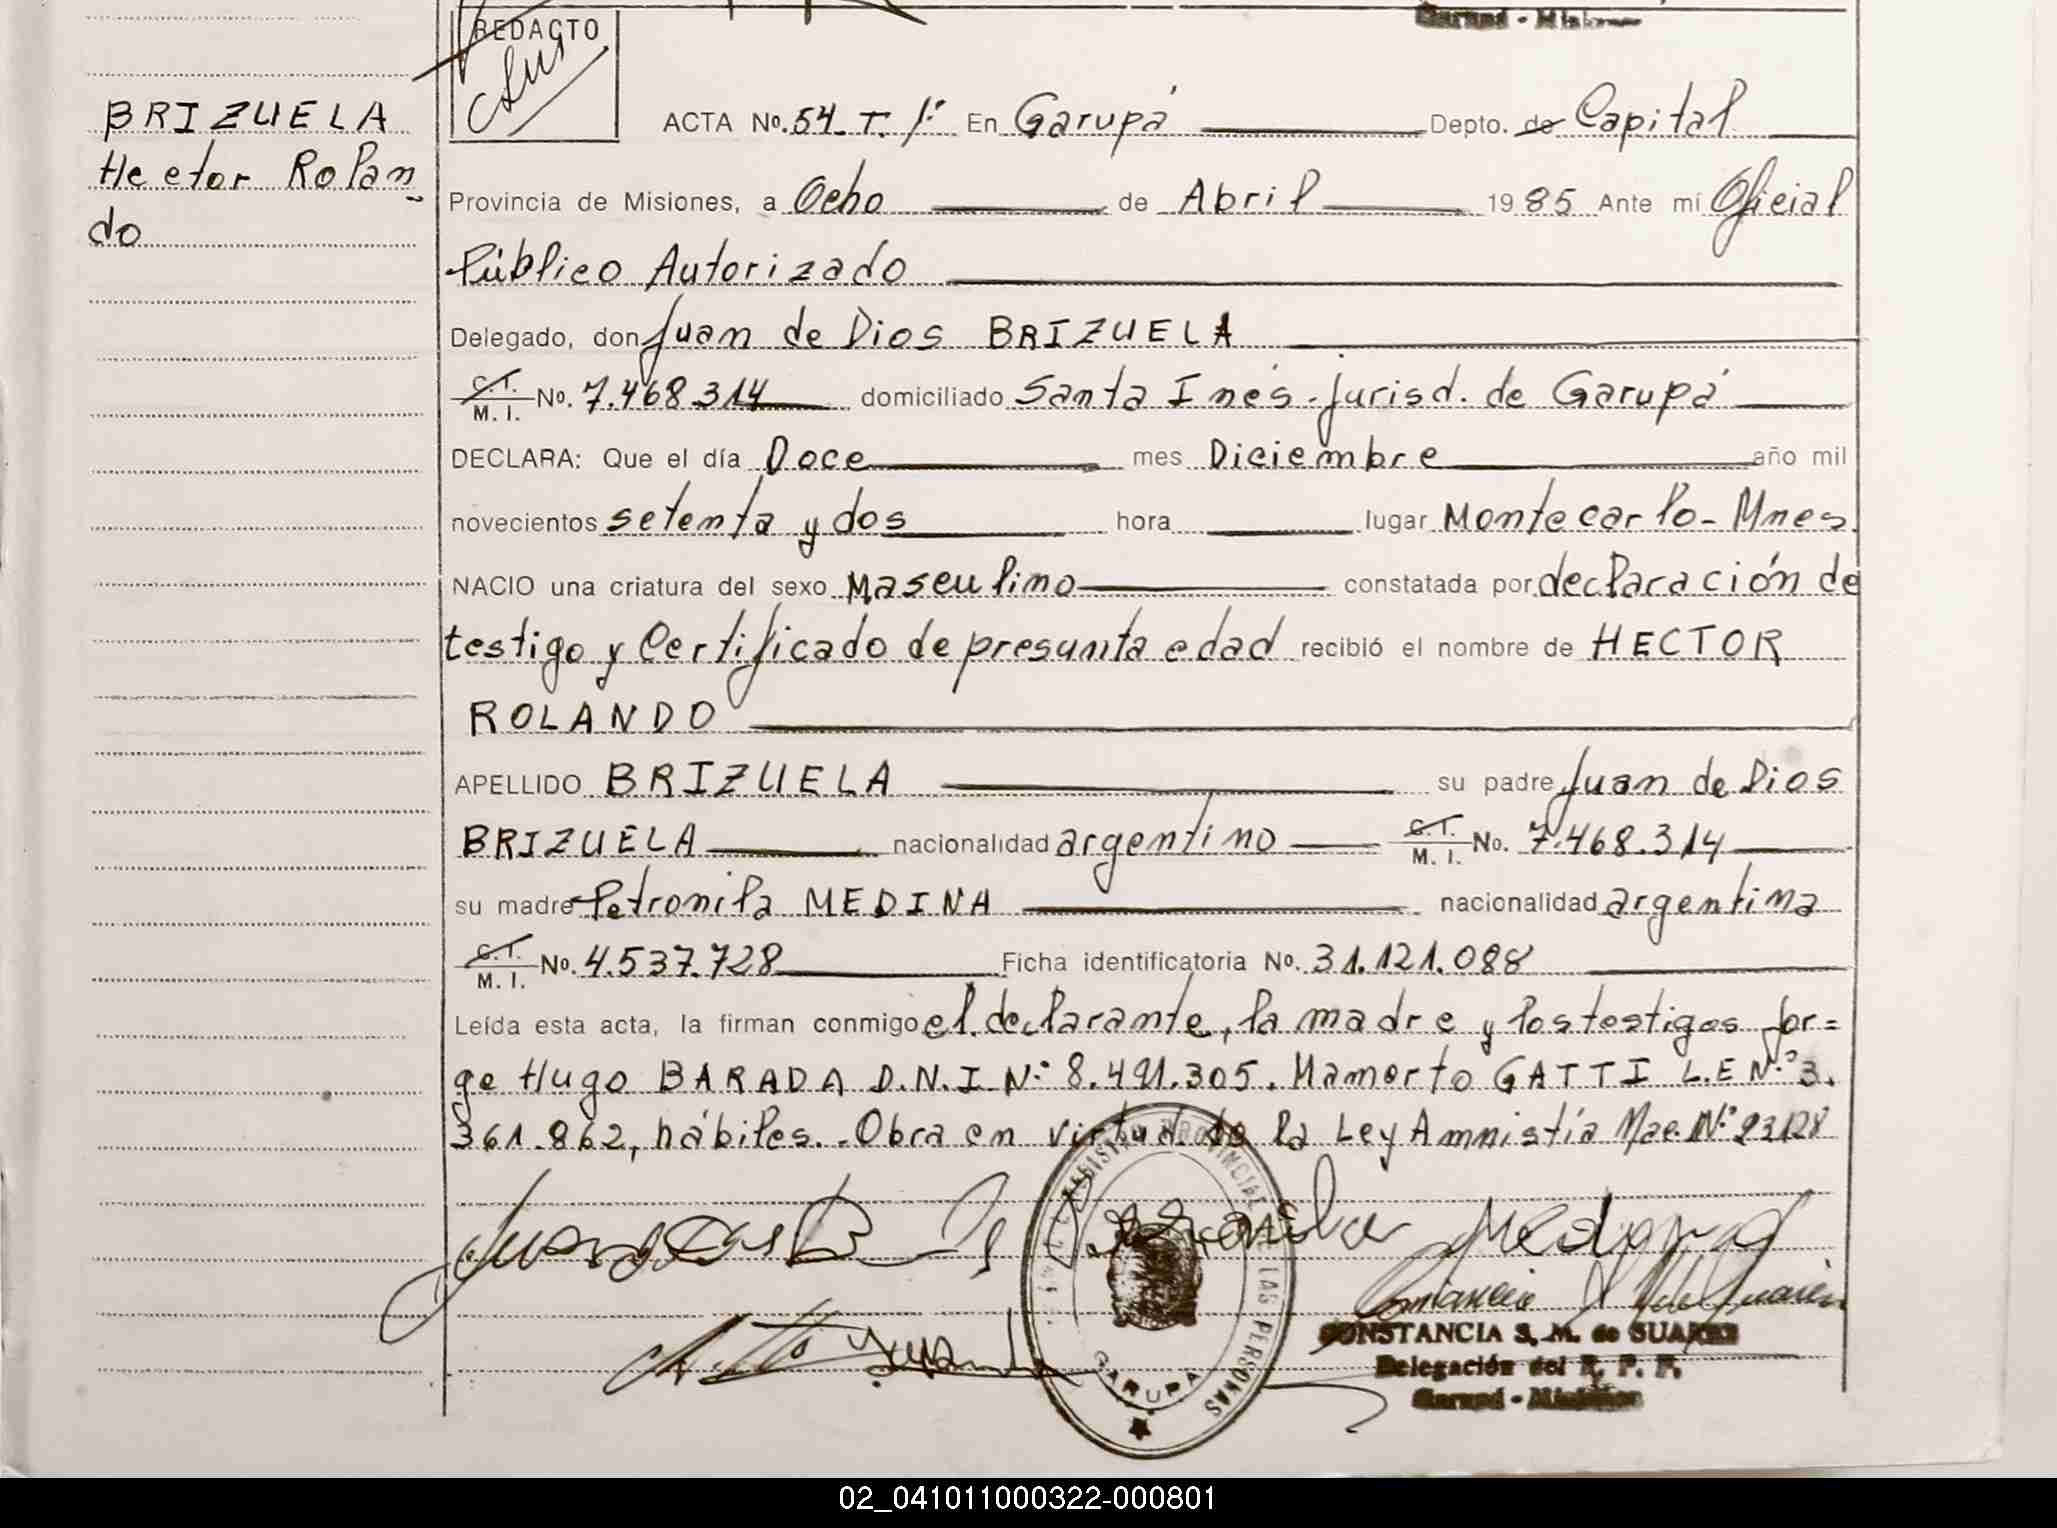 Garupá - Misiones
REDACTO
BRIZUELA
Hector Rolan
do
ACTA No. 54 T. 1º En Garupá Depto. de Capital
Provincia de Misiones, a Ocho de Abril 1985 Ante mí Oficial
Público Autorizado
Delegado, don Juan de Dios BRIZUELA
C.I. M. I. No. 7.468.314 domiciliado Santa Inés - jurisd. de Garupá
DECLARA: Que el día Doce mes Diciembre año mil
novecientos setenta y dos hora lugar Montecarlo - Mnes.
NACIO una criatura del sexo Masculino constatada por declaración de
testigo y Certificado de presunta edad recibió el nombre de HECTOR
ROLANDO
APELLIDO BRIZUELA su padre Juan de Dios
BRIZUELA nacionalidad argentino C.I. M. I. No. 7.468.314
su madre Petronila MEDINA nacionalidad argentina
C.I. M. I. No. 4.537.728 Ficha identificatoria No. 31.121.088
Leída esta acta, la firman conmigo el declarante, la madre y los testigos Jor=
ge Hugo BARADA D.N.I Nº 8.491.305. Mamerto GATTI L.E Nº 3.
361.862, hábiles.- Obra en virtud de la Ley Amnistía Nac. Nº 23128
REGISTRO PROVINCIAL DE LAS PERSONAS
GARUPA
CONSTANCIA S. M. de SUAREZ
Delegación del R. P. P.
Garupá - Misiones
02_041011000322-000801